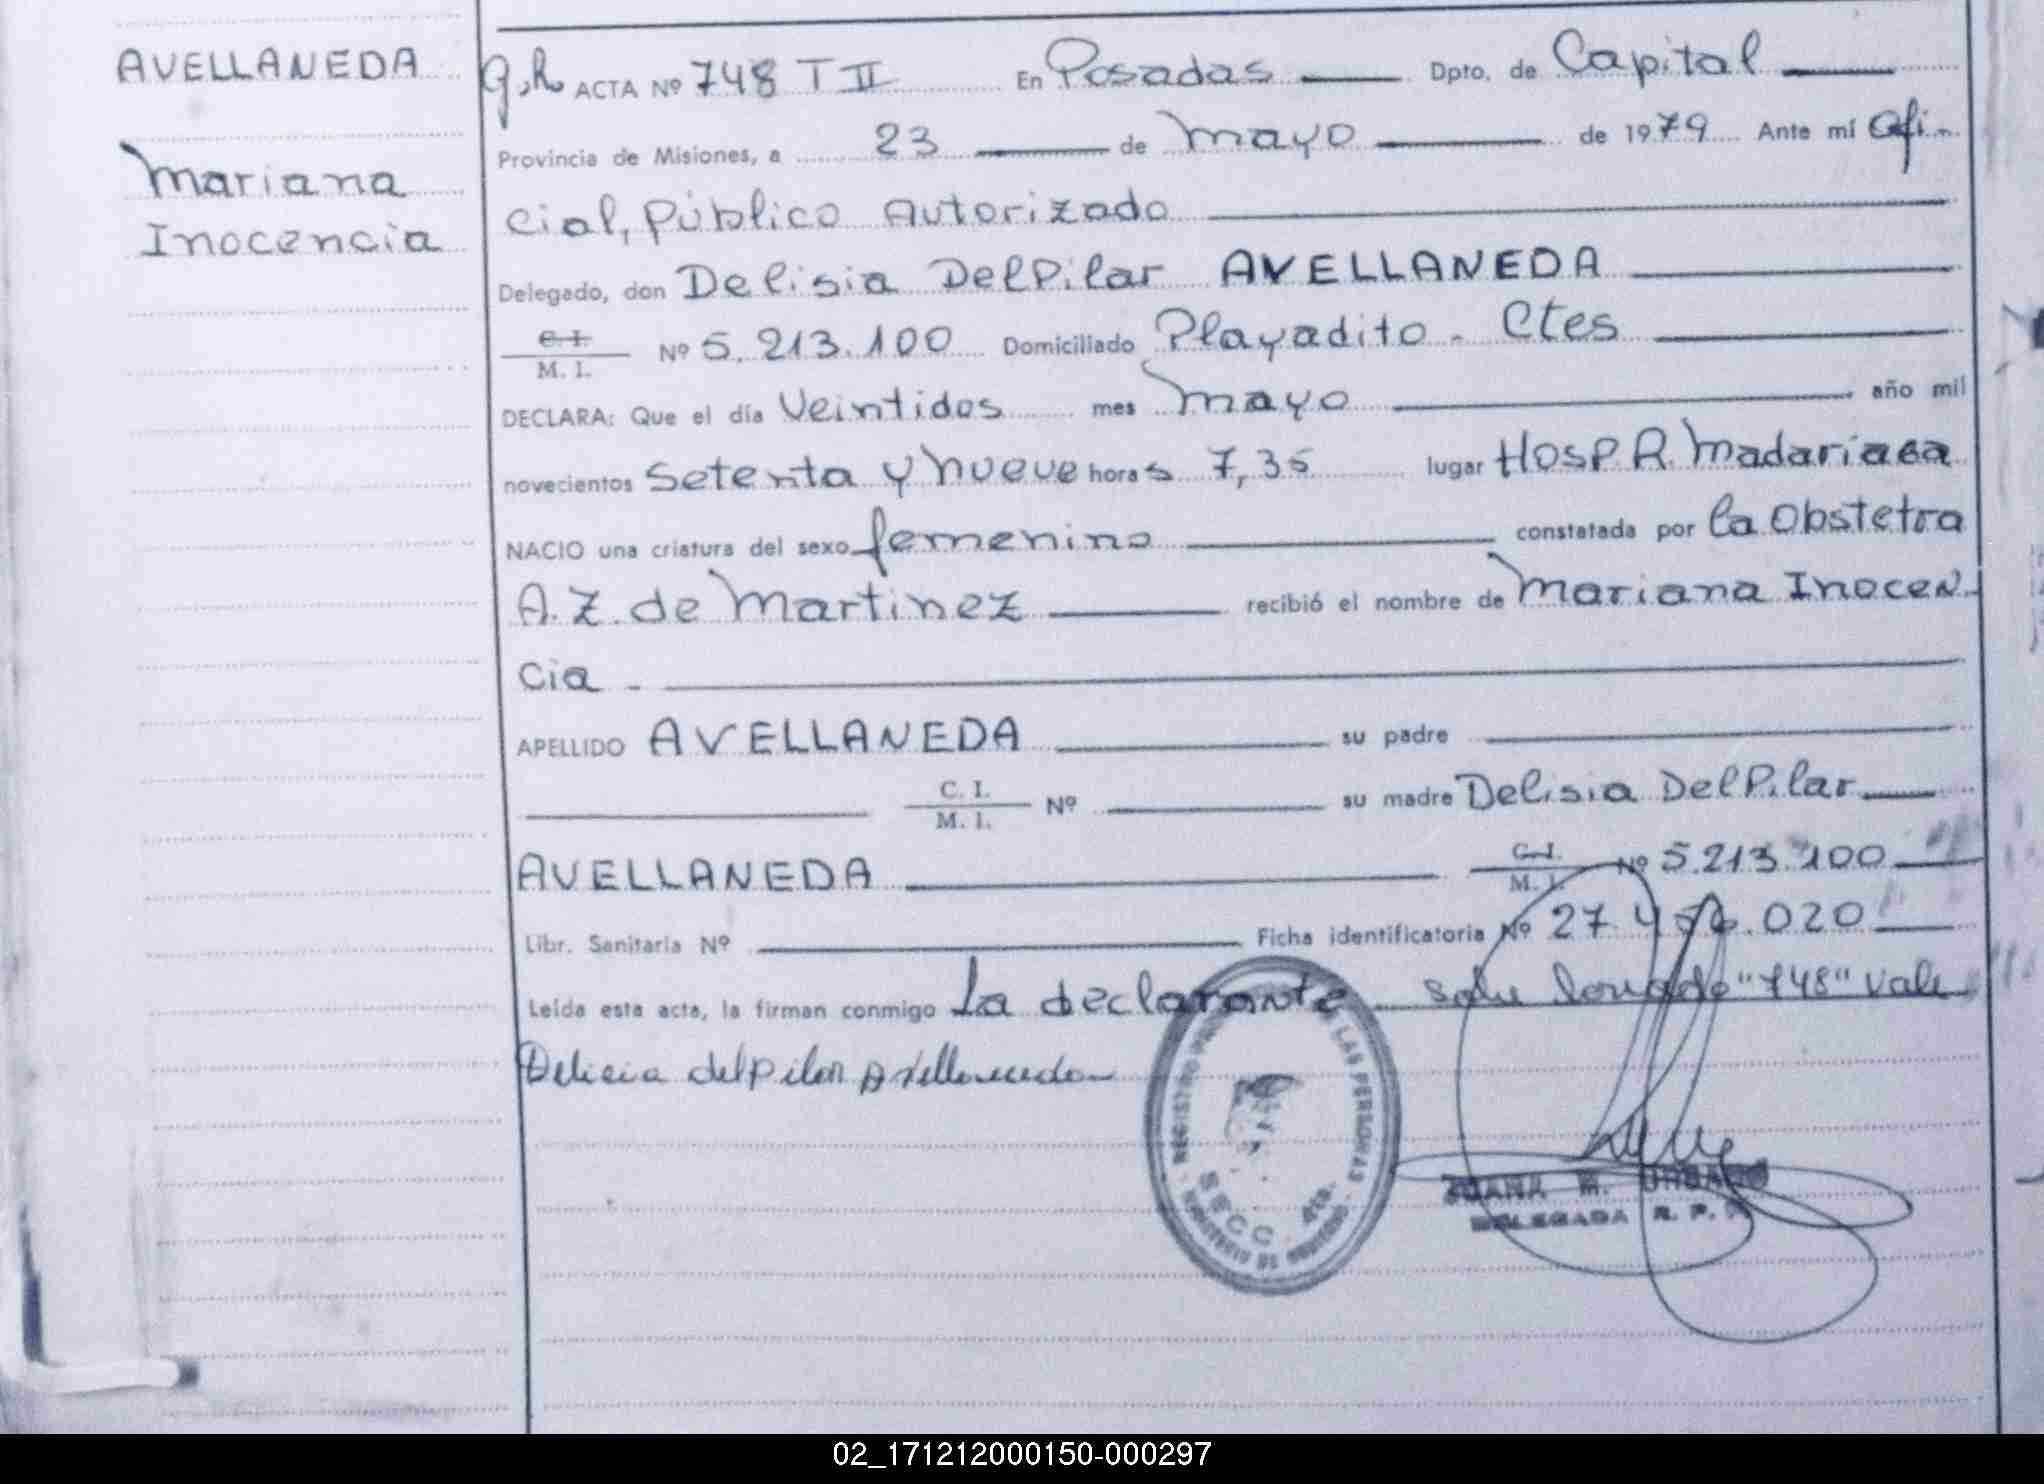 AVELLANEDA
Mariana
Inocencia
ACTA Nº 748 T II En Posadas Dpto. de Capital
Provincia de Misiones, a 23 de mayo de 1979 Ante mí Ofi-
cial, Público Autorizado
Delegado, don Delisia Del Pilar AVELLANEDA
C. I. / M. I. Nº 5.213.100 Domiciliado Playadito - Ctes
DECLARA: Que el día Veintidos mes mayo año mil
novecientos Setenta y nueve horas 7,35 lugar Hosp R. Madariaga
NACIO una criatura del sexo femenino constatada por la Obstetra
A. Z. de Martinez recibió el nombre de Mariana Inocen-
cia
APELLIDO AVELLANEDA su padre
C. I. / M. I. Nº su madre Delisia Del Pilar
AVELLANEDA C. I. / M. I. Nº 5.213.100
Libr. Sanitaria Nº Ficha identificatoria Nº 27.4 .020
Leída esta acta, la firman conmigo La declarante Sobre "748" Vale
Delicia del Pilar Avellaneda
REGISTRO LAS PERSONAS
SECC. 4ta.
MINISTERIO DE GOBIERNO
JUANA M.
DELEGADA R. P. P.
02_171212000150-000297